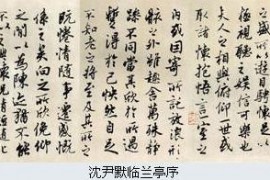 盛所以遊目騁懷足以
極視聽之娛信可樂也
夫人之相與俯仰一世或
取諸懷抱悟言一室之
內或因寄所託放浪形
骸之外雖趣舍萬殊靜
躁不同當其欣於所遇
暫得於己快然自足
不知老之將至及其所之
既惓情隨事遷感慨
係之矣向之所欣俛仰
之間以為陳迹猶不能
不以之興懷況脩短隨
沈尹默临兰亭序